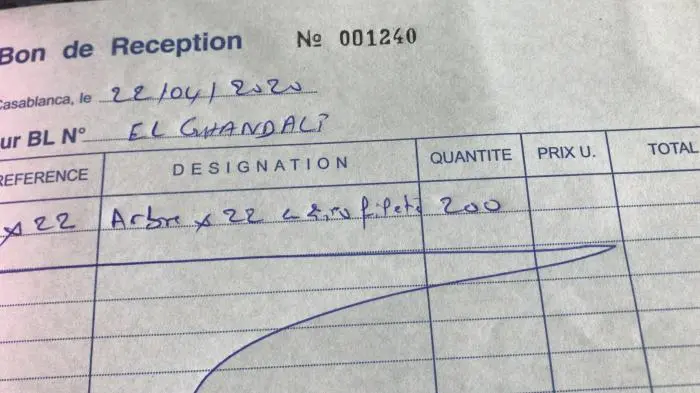 Bon de Reception № 001240
Casablanca, le 22/04/2020
ur BL N° EL GHANDALI
REFERENCE DESIGNATION QUANTITE PRIX U. TOTAL
x 22 Arbre x 22 200